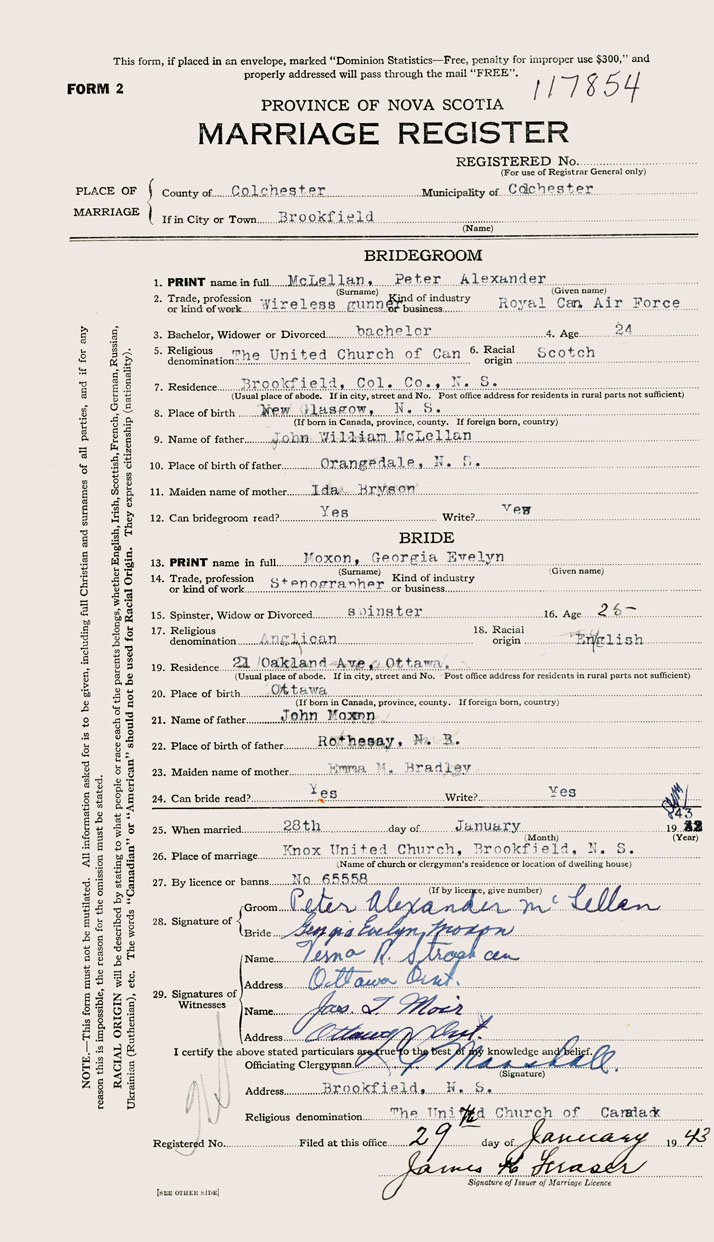 This form, if placed in an envelope, marked “Dominion Statistics—Free, penalty for improper use $300,” and
properly addressed will pass through the mail “FREE”.
FORM 2
117854
PROVINCE OF NOVA SCOTIA
MARRIAGE REGISTER
REGISTERED No.
(For use of Registrar General only)
PLACE OF MARRIAGE
County of Colchester Municipality of Colchester
If in City or Town Brookfield
(Name)
BRIDEGROOM
1. PRINT name in full McLellan, Peter Alexander
(Surname) (Given name)
2. Trade, profession or kind of work Wireless gunner Kind of industry or business Royal Can Air Force
3. Bachelor, Widower or Divorced bachelor 4. Age 24
5. Religious denomination The United Church of Can 6. Racial origin Scotch
7. Residence Brookfield, Col. Co., N. S.
(Usual place of abode. If in city, street and No. Post office address for residents in rural parts not sufficient)
8. Place of birth New Glasgow, N. S.
(If born in Canada, province, county. If foreign born, country)
9. Name of father John William McLellan
10. Place of birth of father Orangedale, N. S.
11. Maiden name of mother Ida Bryson
12. Can bridegroom read? Yes Write? Yes
BRIDE
13. PRINT name in full Moxon, Georgia Evelyn
(Surname) (Given name)
14. Trade, profession or kind of work Stenographer Kind of industry or business
15. Spinster, Widow or Divorced spinster 16. Age 25
17. Religious denomination Anglican 18. Racial origin English
19. Residence 21 Oakland Ave, Ottawa.
(Usual place of abode. If in city, street and No. Post office address for residents in rural parts not sufficient)
20. Place of birth Ottawa
(If born in Canada, province, county. If foreign born, country)
21. Name of father John Moxon
22. Place of birth of father Rothesay, N. B.
23. Maiden name of mother Emma M. Bradley
24. Can bride read? Yes Write? Yes
25. When married 28th day of January 19 43
(Month) (Year)
26. Place of marriage Knox United Church, Brookfield, N. S.
(Name of church or clergyman's residence or location of dwelling house)
27. By licence or banns No 65558
(If by licence, give number)
28. Signature of
Groom Peter Alexander McLellan
Bride Georgia Evelyn Moxon
29. Signatures of Witnesses
Name Verna R. Strachan
Address Ottawa Ont.
Name Jas. T. Moir
Address Ottawa Ont.
I certify the above stated particulars are true to the best of my knowledge and belief.
Officiating Clergyman Marshall.
(Signature)
Address Brookfield, N. S.
Religious denomination The United Church of Canada
Registered No. Filed at this office 29th day of January 19 43
James Fraser
Signature of Issuer of Marriage Licence
[SEE OTHER SIDE]
NOTE.—This form must not be mutilated. All information asked for is to be given, including full Christian and surnames of all parties, and if for any
reason this is impossible, the reason for the omission must be stated.
RACIAL ORIGIN will be described by stating to what people or race each of the parents belongs, whether English, Irish, Scottish, French, German, Russian,
Ukrainian (Ruthenian), etc. The words “Canadian” or “American” should not be used for Racial Origin. They express citizenship (nationality).